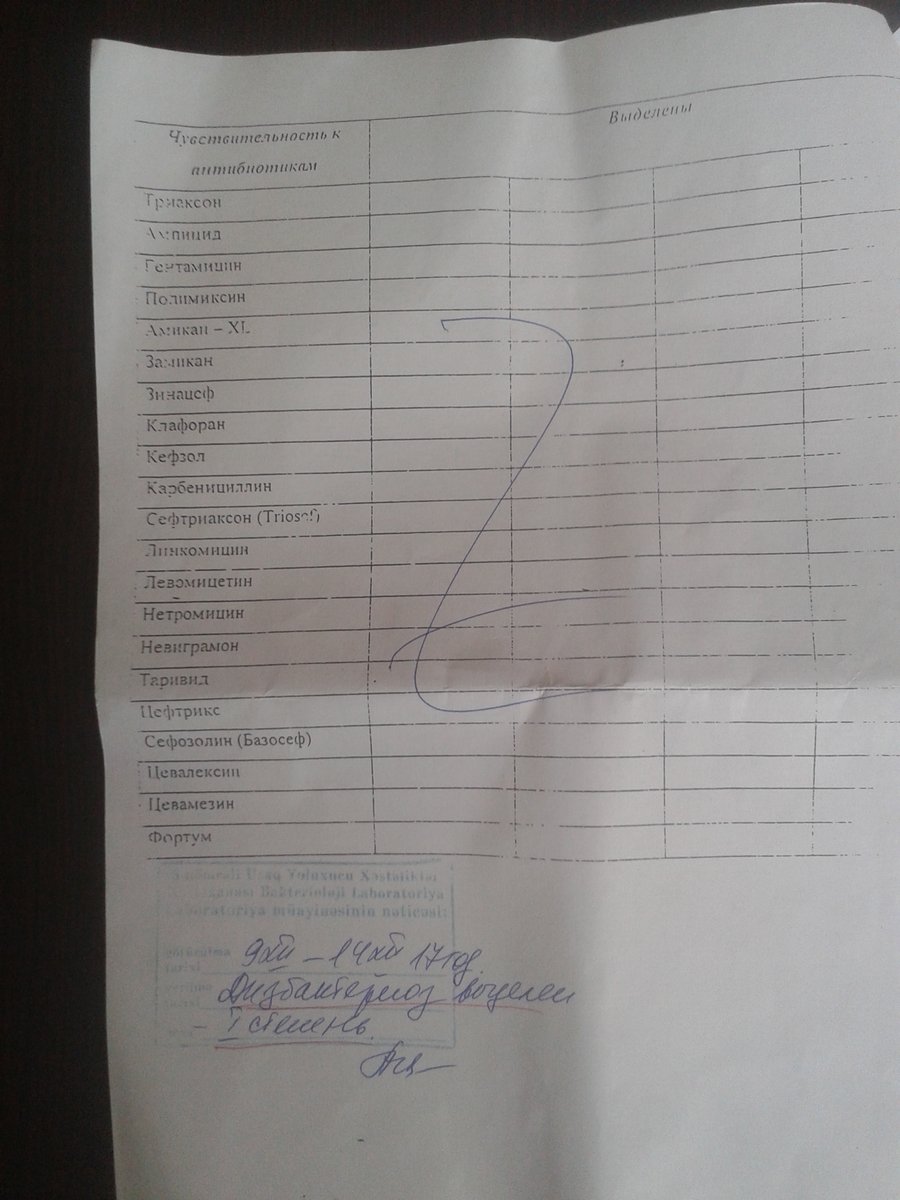 Чувствительность к
антибиотикам
Выделены
Триаксон
Ампицид
Гентамицин
Полимиксин
Амикан – XL
Замикан
Зинацеф
Клафоран
Кефзол
Карбенициллин
Сефтриаксон (Triosef)
Линкомицин
Левомицетин
Нетромицин
Невиграмон
Таривид
Цефтрикс
Сефозолин (Базосеф)
Цевалексин
Цевамезин
Фортум
Uşaq Yoluxucu Xəstəliklər
Bakterioloji Laboratoriya
Laboratoriya müayinəsinin nəticəsi:
götürülmə
tarixi
9XII – 14XII 17 год.
verilmə
tarixi
Дизбактериоз выделен
– I степень.